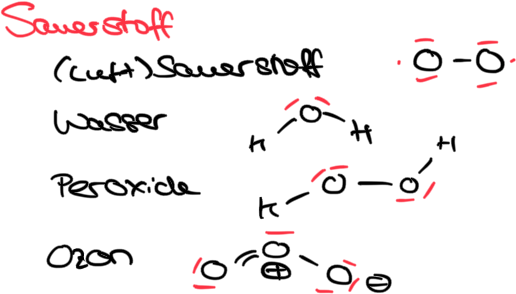 Sauerstoff
(Luft) Sauerstoff O - O
Wasser H O H
Peroxide H O - O H
Ozon O = O - O
⊕ ⊖